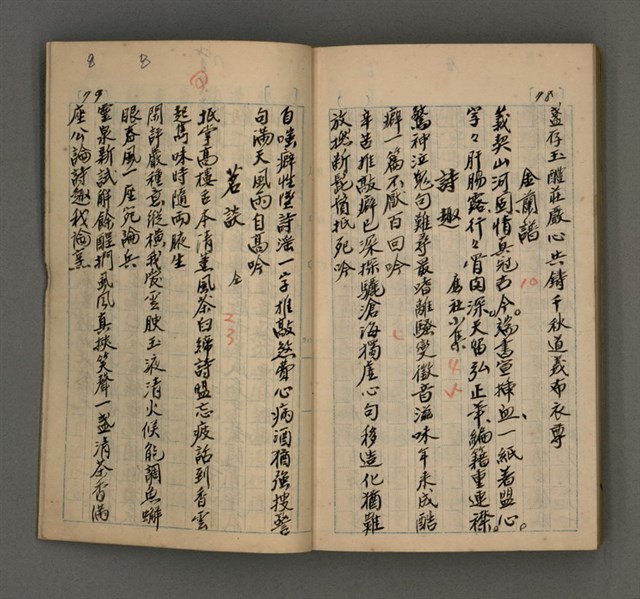 78
盞存玉醴莊嚴心共鑄千秋道義布衣尊
金蘭譜
10
義契山河固情真冠古今。端書宣插血、一紙著盟心。
字々肝腸露行々胃肉深天留弘正筆、編籍重連襟。
詩趣
應社小集
4
驚神泣鬼句難尋最嗜離騷變徵音滋味年來成酷
癖一篇不厭百回吟
辛苦推敲癖已深探驪滄海獨虛心句移造化猶難
放撚斷髭鬚抵死吟
79
自嗤癖性墜詩淫一字推敲煞費心病酒猶強搜警
句滿天風雨自高吟
茗談
仝
23
抵掌高樓舌本清薰風茶臼締詩盟忘疲話到香雲
起雋味時隨兩腋生
閑評嚴種意縱橫我愛雲腴玉液清火候能調魚蟹
眼春風一座宛論兵
靈泉新試解餘酲捫虱風真挾笑聲一盞清茶香滿
座公論詩趣我論